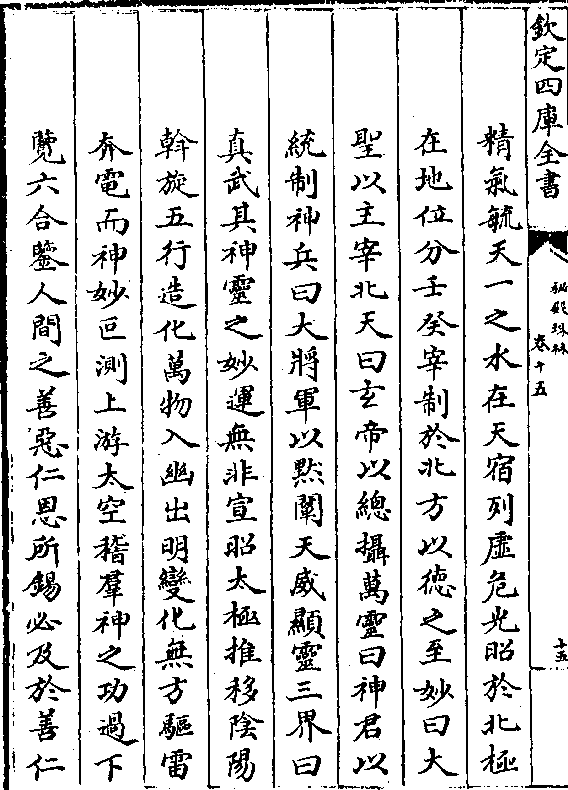 欽定四庫全書
秘殿珠林
卷十五
十五
精氣毓天一之水在天宿列虛危光昭於北極
在地位分壬癸宰制於北方以德之至妙曰大
聖以主宰北天曰玄帝以總攝萬靈曰神君以
統制神兵曰大將軍以黙闡天威顯靈三界曰
真武其神靈之妙運無非宣昭太極推移陰陽
斡旋五行造化萬物入幽出明變化無方驅雷
奔電而神妙叵測上游太空稽羣神之功過下
覽六合鑒人間之善惡仁恩所錫必及於善仁